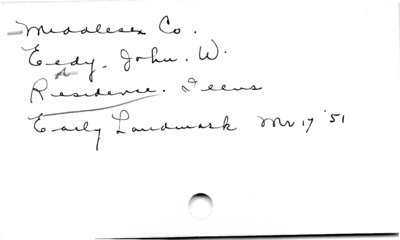 Middlesex Co.
Eedy, John. W.
Residence. Illus
Early Landmark Mr 17 '51